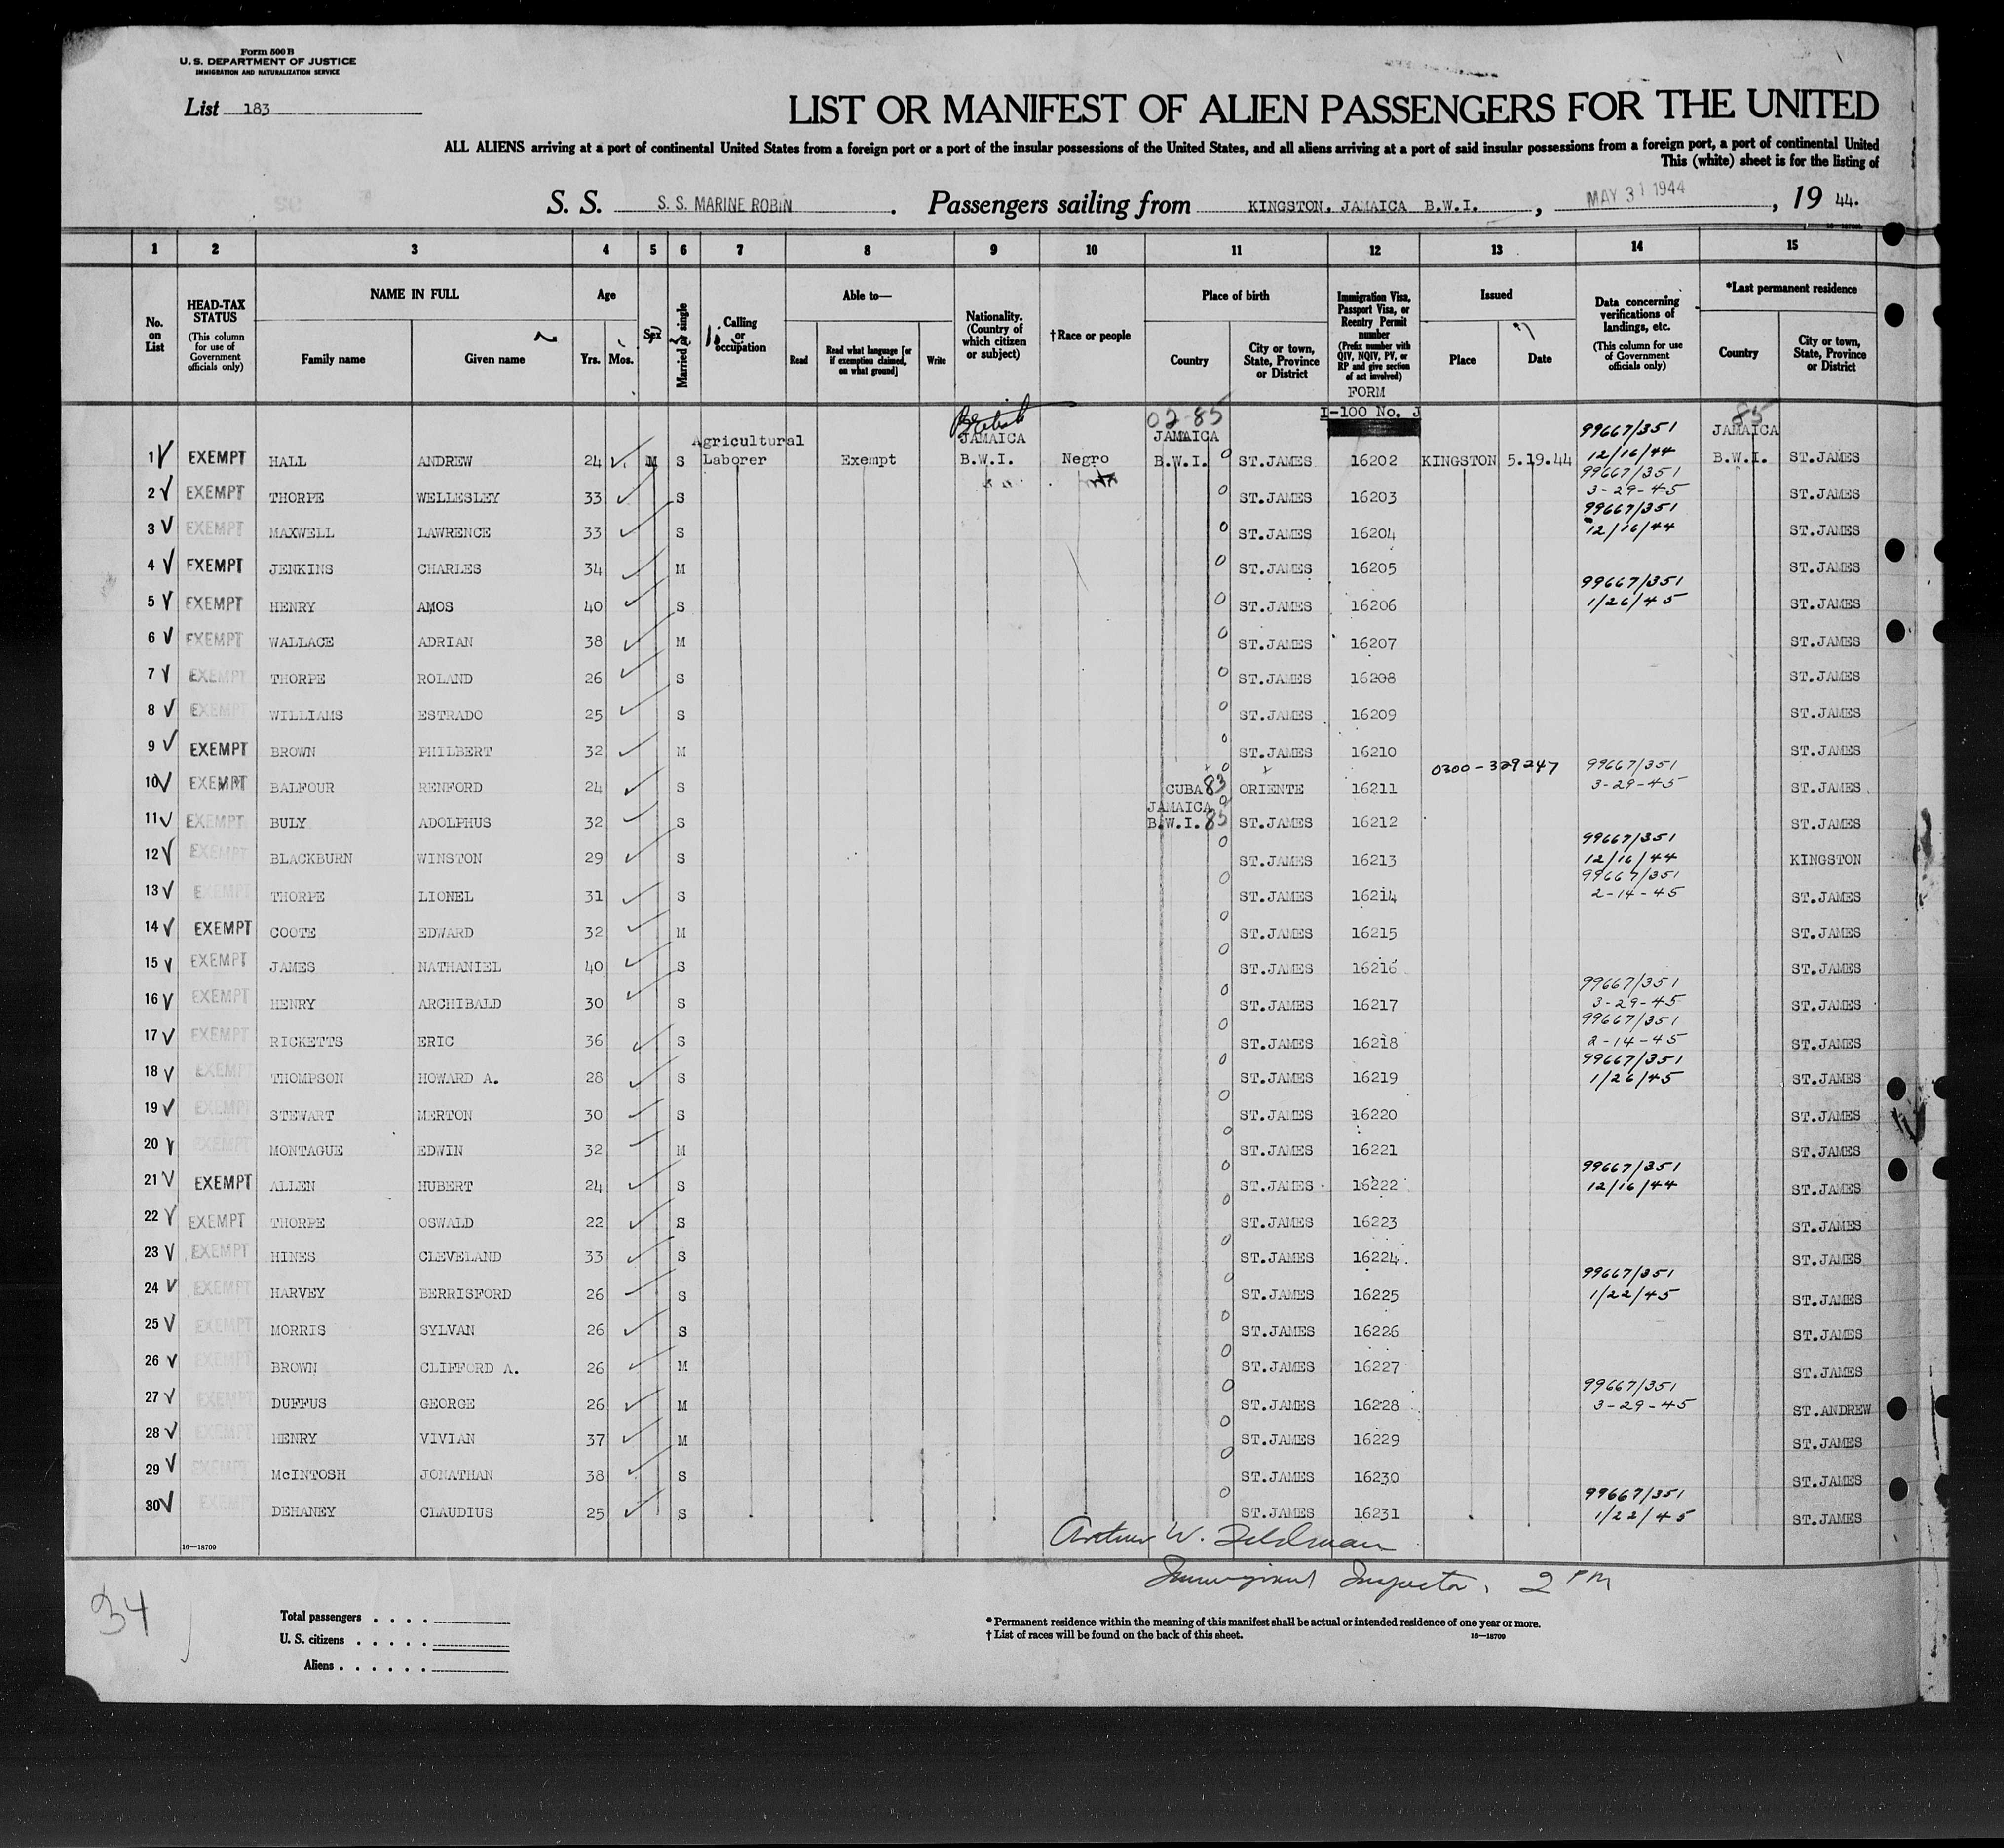 Form 500 B
U. S. DEPARTMENT OF JUSTICE
IMMIGRATION AND NATURALIZATION SERVICE
List 183
LIST OR MANIFEST OF ALIEN PASSENGERS FOR THE UNITED
ALL ALIENS arriving at a port of continental United States from a foreign port or a port of the insular possessions of the United States, and all aliens arriving at a port of said insular possessions from a foreign port, a port of continental United
This (white) sheet is for the listing of
S. S. S. S. MARINE ROBIN . Passengers sailing from KINGSTON. JAMAICA B.W.I. , MAY 31 1944 , 19 44.
1 2 3 4 5 6 7 8 9 10 11 12 13 14 15
No. on List
HEAD-TAX STATUS
(This column for use of Government officials only)
NAME IN FULL
Family name
Given name
Age
Yrs.
Mos.
Sex
Married or single
Calling or occupation
Able to—
Read
Read what language [or if exemption claimed, on what ground]
Write
Nationality. (Country of which citizen or subject)
† Race or people
Place of birth
Country
City or town, State, Province or District
Immigration Visa, Passport Visa, or Reentry Permit number
(Prefix number with QIV, NQIV, PV, or RP and give section of act involved)
FORM
I-100 No. J
Issued
Place
Date
Data concerning verifications of landings, etc.
(This column for use of Government officials only)
*Last permanent residence
Country
City or town, State, Province or District
British 02-85 85
1 EXEMPT HALL ANDREW 24 M S Agricultural Laborer Exempt JAMAICA B.W.I. Negro JAMAICA B.W.I. 0 ST.JAMES 16202 KINGSTON 5.19.44 99667/351 12/16/44 JAMAICA B.W.I. ST.JAMES
2 EXEMPT THORPE WELLESLEY 33 S 0 ST.JAMES 16203 99667/351 3-29-45 ST.JAMES
3 EXEMPT MAXWELL LAWRENCE 33 S 0 ST.JAMES 16204 99667/351 12/16/44 ST.JAMES
4 EXEMPT JENKINS CHARLES 34 M 0 ST.JAMES 16205 ST.JAMES
5 EXEMPT HENRY AMOS 40 S 0 ST.JAMES 16206 99667/351 1/26/45 ST.JAMES
6 EXEMPT WALLACE ADRIAN 38 M 0 ST.JAMES 16207 ST.JAMES
7 EXEMPT THORPE ROLAND 26 S 0 ST.JAMES 16208 ST.JAMES
8 EXEMPT WILLIAMS ESTRADO 25 S 0 ST.JAMES 16209 ST.JAMES
9 EXEMPT BROWN PHILBERT 32 M 0 ST.JAMES 16210 ST.JAMES
10 EXEMPT BALFOUR RENFORD 24 S CUBA 83 0 ORIENTE 16211 0300-329247 99667/351 3-29-45 ST.JAMES
11 EXEMPT BULY ADOLPHUS 32 S JAMAICA B.W.I. 85 0 ST.JAMES 16212 ST.JAMES
12 EXEMPT BLACKBURN WINSTON 29 S 0 ST.JAMES 16213 99667/351 12/16/44 KINGSTON
13 EXEMPT THORPE LIONEL 31 S 0 ST.JAMES 16214 99667/351 2-14-45 ST.JAMES
14 EXEMPT COOTE EDWARD 32 M 0 ST.JAMES 16215 ST.JAMES
15 EXEMPT JAMES NATHANIEL 40 S 0 ST.JAMES 16216 ST.JAMES
16 EXEMPT HENRY ARCHIBALD 30 S 0 ST.JAMES 16217 99667/351 3-29-45 ST.JAMES
17 EXEMPT RICKETTS ERIC 36 S 0 ST.JAMES 16218 99667/351 2-14-45 ST.JAMES
18 EXEMPT THOMPSON HOWARD A. 28 S 0 ST.JAMES 16219 99667/351 1/26/45 ST.JAMES
19 EXEMPT STEWART MERTON 30 S 0 ST.JAMES 16220 ST.JAMES
20 EXEMPT MONTAGUE EDWIN 32 M 0 ST.JAMES 16221 ST.JAMES
21 EXEMPT ALLEN HUBERT 24 S 0 ST.JAMES 16222 99667/351 12/16/44 ST.JAMES
22 EXEMPT THORPE OSWALD 22 S 0 ST.JAMES 16223 ST.JAMES
23 EXEMPT HINES CLEVELAND 33 S 0 ST.JAMES 16224 ST.JAMES
24 EXEMPT HARVEY BERRISFORD 26 S 0 ST.JAMES 16225 99667/351 1/22/45 ST.JAMES
25 EXEMPT MORRIS SYLVAN 26 S 0 ST.JAMES 16226 ST.JAMES
26 EXEMPT BROWN CLIFFORD A. 26 M 0 ST.JAMES 16227 ST.JAMES
27 EXEMPT DUFFUS GEORGE 26 M 0 ST.JAMES 16228 99667/351 3-29-45 ST.ANDREW
28 EXEMPT HENRY VIVIAN 37 M 0 ST.JAMES 16229 ST.JAMES
29 EXEMPT McINTOSH JONATHAN 38 S 0 ST.JAMES 16230 ST.JAMES
30 EXEMPT DEHANEY CLAUDIUS 25 S 0 ST.JAMES 16231 99667/351 1/22/45 ST.JAMES
16—18709
Arthur W. Feldman
Immigrant Inspector. 2 PM
34
Total passengers
U. S. citizens
Aliens
* Permanent residence within the meaning of this manifest shall be actual or intended residence of one year or more.
† List of races will be found on the back of this sheet.
16—18709